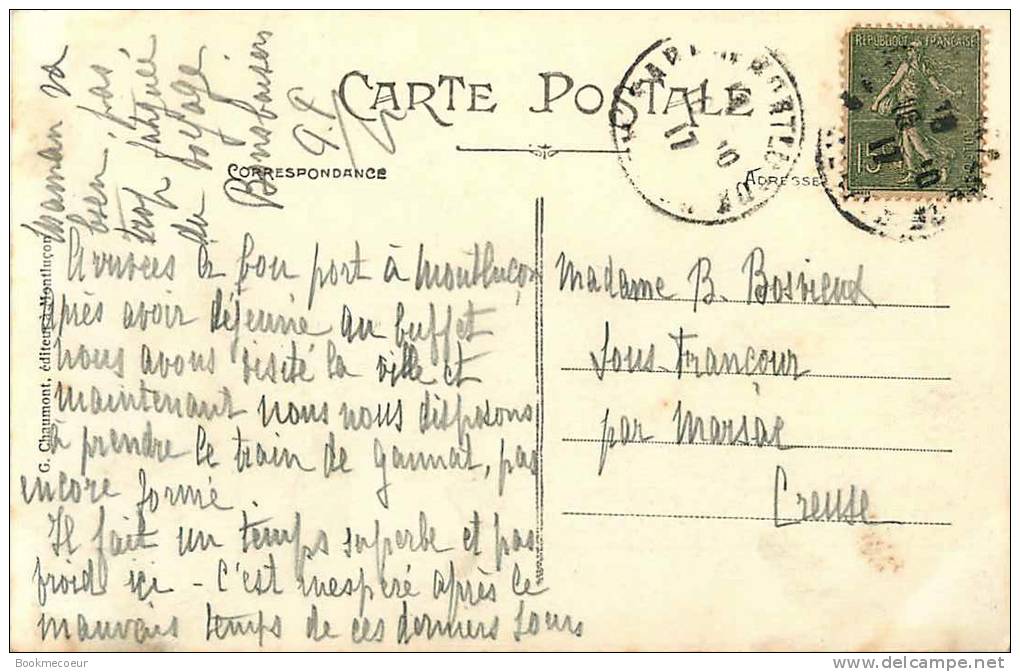 CARTE POSTALE
CORRESPONDANCE
ADRESSE
REPUBLIQUE FRANÇAISE
15
G. Chaumont, éditeur à Montluçon
Maman va
bien, pas
trop fatiguée
du voyage
Bons baisers
Arrivées à bon port à Montluçon
près avoir déjeuné au buffet
nous avons visité la ville et
maintenant nous nous disposons
à prendre le train de Gannat, pas
encore formé.
Il fait un temps superbe et pas
froid ici - C'est inespéré après le
mauvais temps de ces derniers jours
Madame B. Bosvieux
Sous-Francour
par Marsac
Creuse
Bookmecoeur
www.delcampe.net